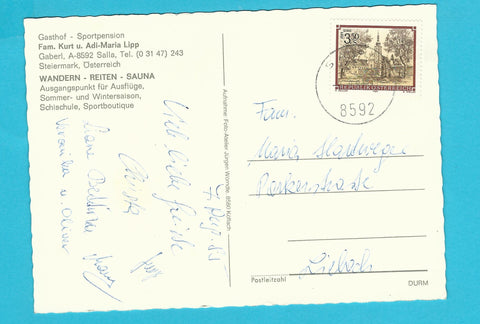 Gasthof - Sportpension
Fam. Kurt u. Adi-Maria Lipp
Gaberl, A-8592 Salla, Tel. (0 31 47) 243
Steiermark, Österreich
WANDERN - REITEN - SAUNA
Ausgangspunkt für Ausflüge,
Sommer- und Wintersaison,
Schischule, Sportboutique
Viele liebe Grüße
Christa
Veronika u. Oliver
Aufnahme: Foto-Atelier Jürgen Worndle, 8580 Köflach
3.50
REPUBLIK ÖSTERREICH
8592
Fam.
Maria
Lieboch
Postleitzahl
DURM